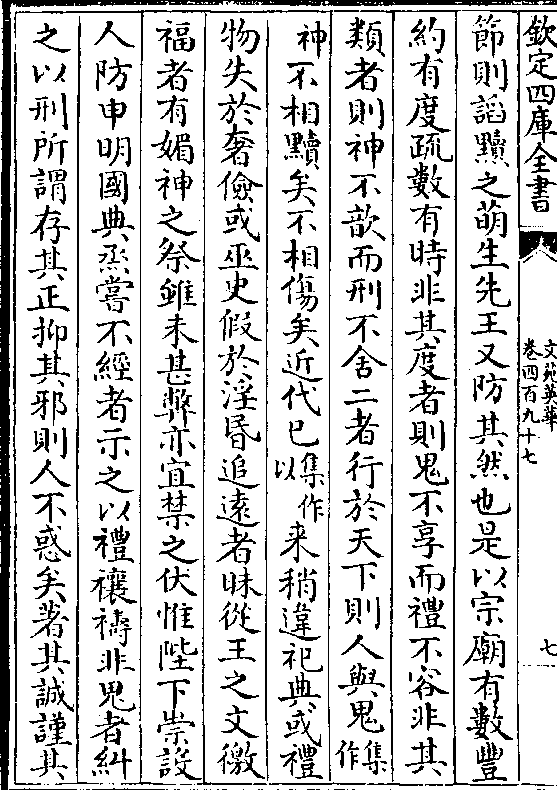 欽定四庫全書
文苑英華
卷四百九十七
七
節則謟黷之萌生先王又防其然也是以宗廟有數豐
約有度疏數有時非其度者則鬼不享而禮不容非其
類者則神不歆而刑不舍二者行於天下則人與鬼集作
神不相黷矣不相傷矣近代已集作以来稍違祀典或禮
物失於奢儉或巫史假於淫昏追遠者昧從王之文徼
福者有媚神之祭雖未甚弊亦宜禁之伏惟陛下崇設
人防申明國典烝嘗不經者示之以禮禳禱非鬼者糾
之以刑所謂存其正抑其邪則人不惑矣著其誠謹其